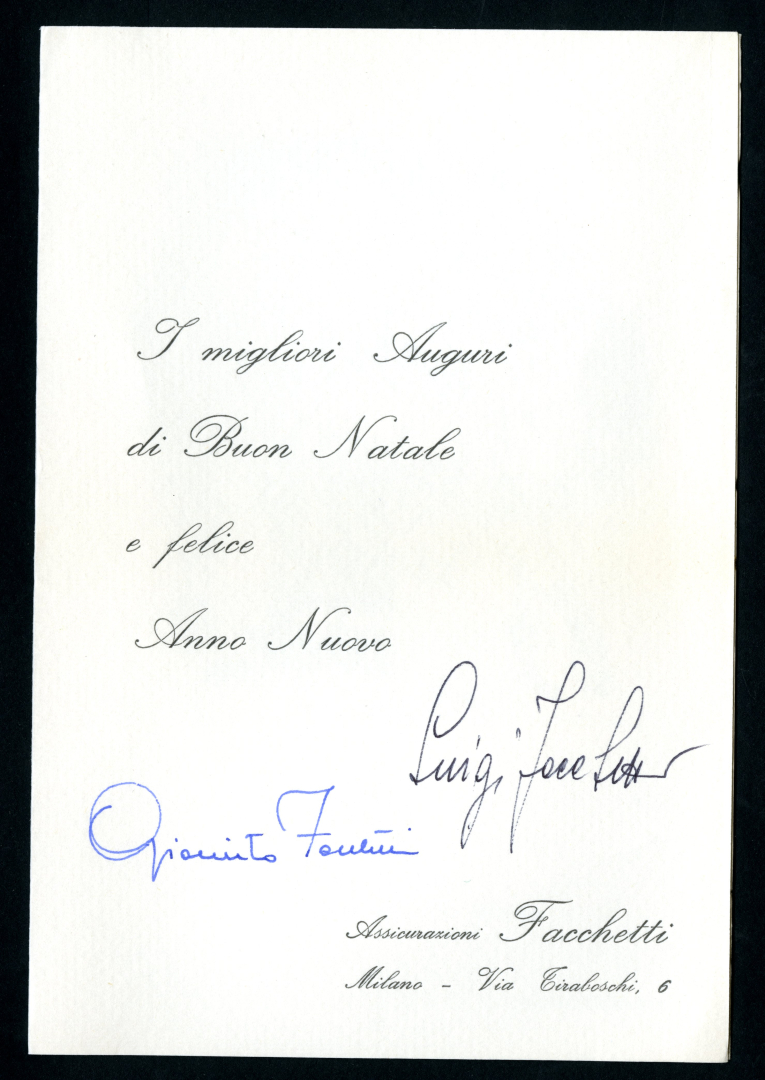 I migliori Auguri
di Buon Natale
e felice
Anno Nuovo
Luigi Facchetti
Assicurazioni Facchetti
Milano - Via Tiraboschi, 6